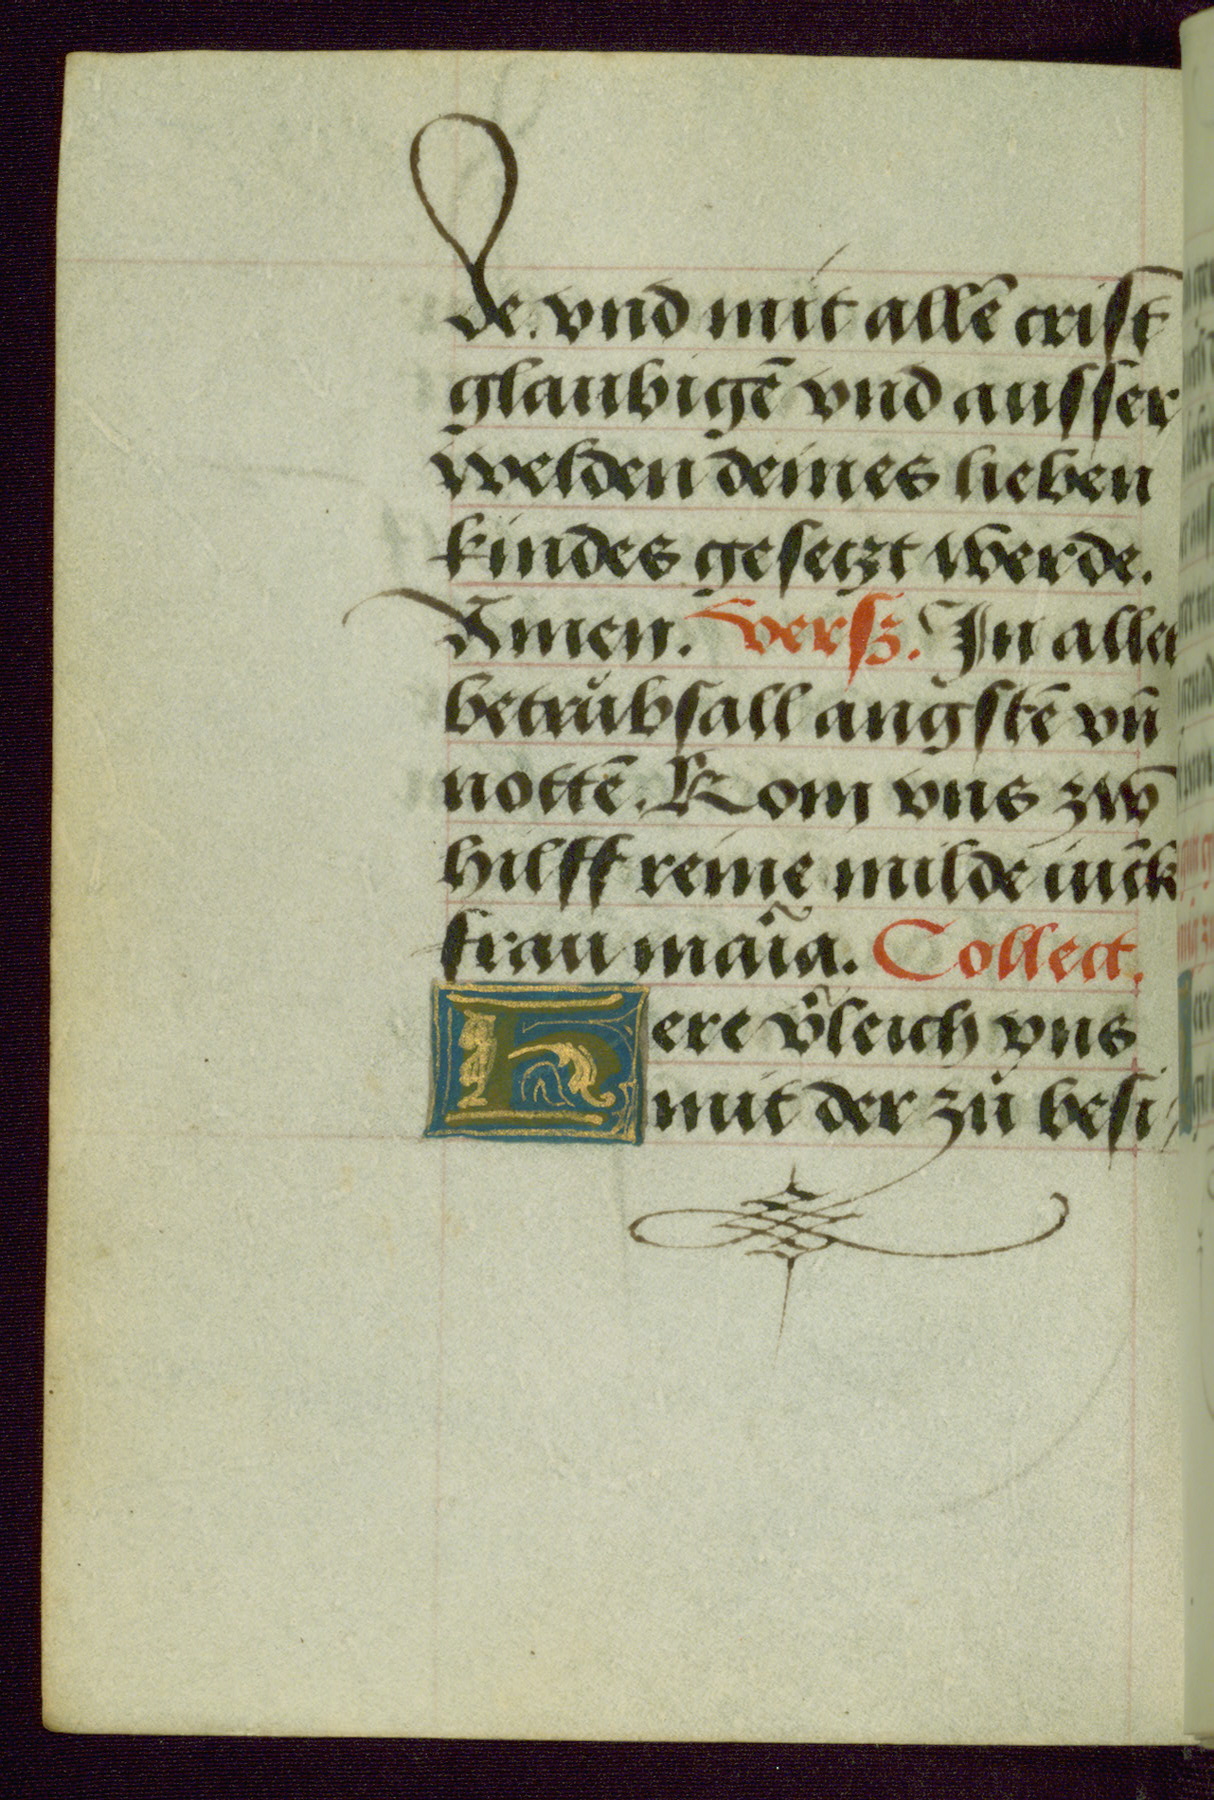 de. vnd mit allē crist
glaubigē vnd ausser
welden deines lieben
kindes gesetzt werde.
Amen. versz. In allen
betrůbsall angstē vn̄
nottē. Kom vns zw̄
hilff reine milde iuck
frau maria. Collect.
Here v̄leich vns
mit der zů besi